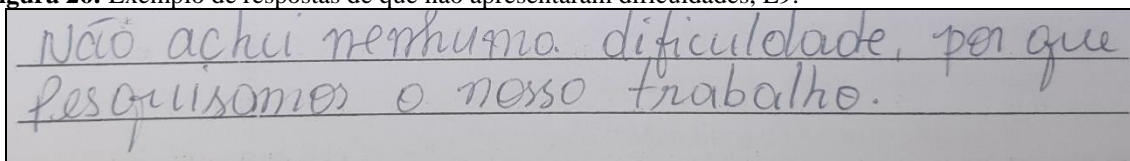 Figura 20: Exemplo de respostas de que não apresentaram dificuldades, E9.
Não achei nenhuma dificuldade, por que
Pesquisamos o nosso trabalho.